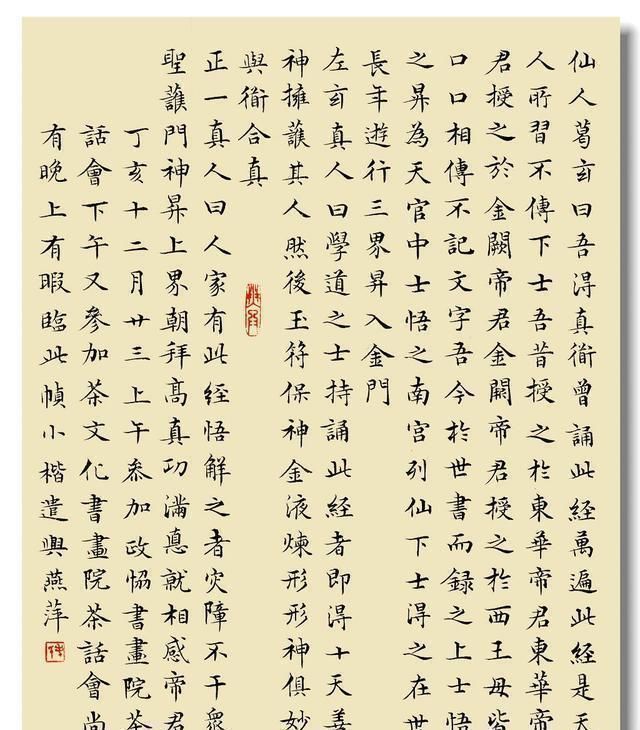 仙人葛玄曰吾淂真衜曾誦此經萬遍此經是天
人所習不傳下士吾昔授之於東華帝君東華帝
君授之於金闕帝君金闕帝君授之於西王母皆
口口相傳不記文字吾今於世書而録之上士悟
之昇為天官中士悟之南宮列仙下士得之在世
長年遊行三界昇入金門
左玄真人曰學道之士持誦此經者即得十天善
神擁護其人然後玉符保神金液煉形形神俱妙
與衜合真
正一真人曰人家有此經悟解之者灾障不干眾
聖護門神昇上界朝拜高真功滿惪就相感帝君
丁亥十二月廿三上午参加政協書畫院茶
話會下午又參加茶文化書畫院茶話會尚
有晚上有暇臨此幀小楷遣興燕萍